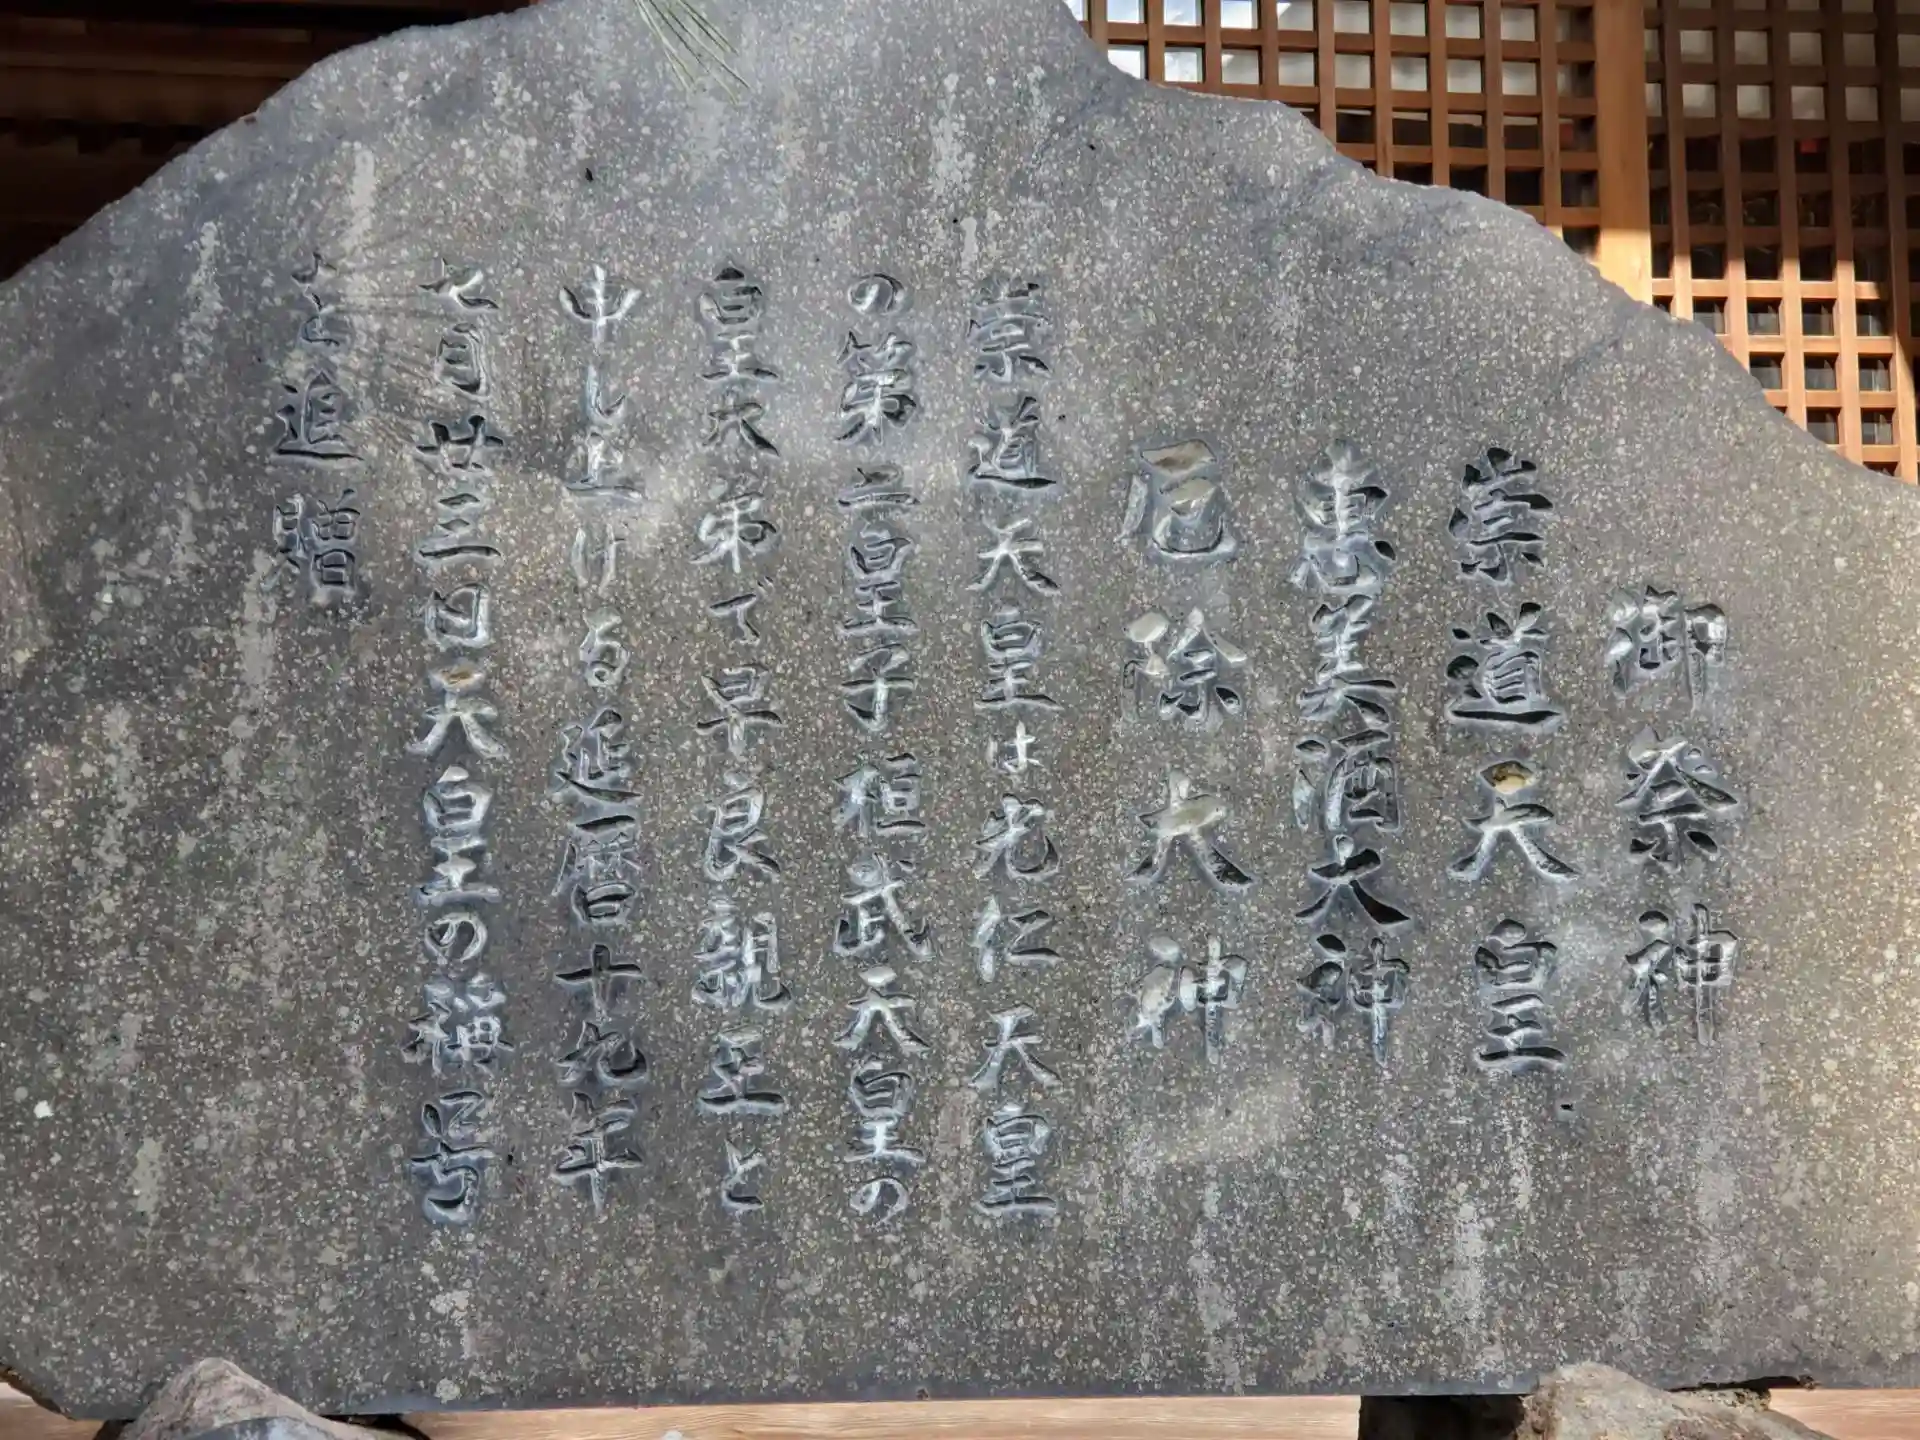 御祭神
崇道天皇
恵美酒大神
厄除大神
崇道天皇は光仁天皇
の第二皇子桓武天皇の
皇太弟で早良親王と
申し上げる延暦十九年
七月廿三日天皇の称号
を追贈